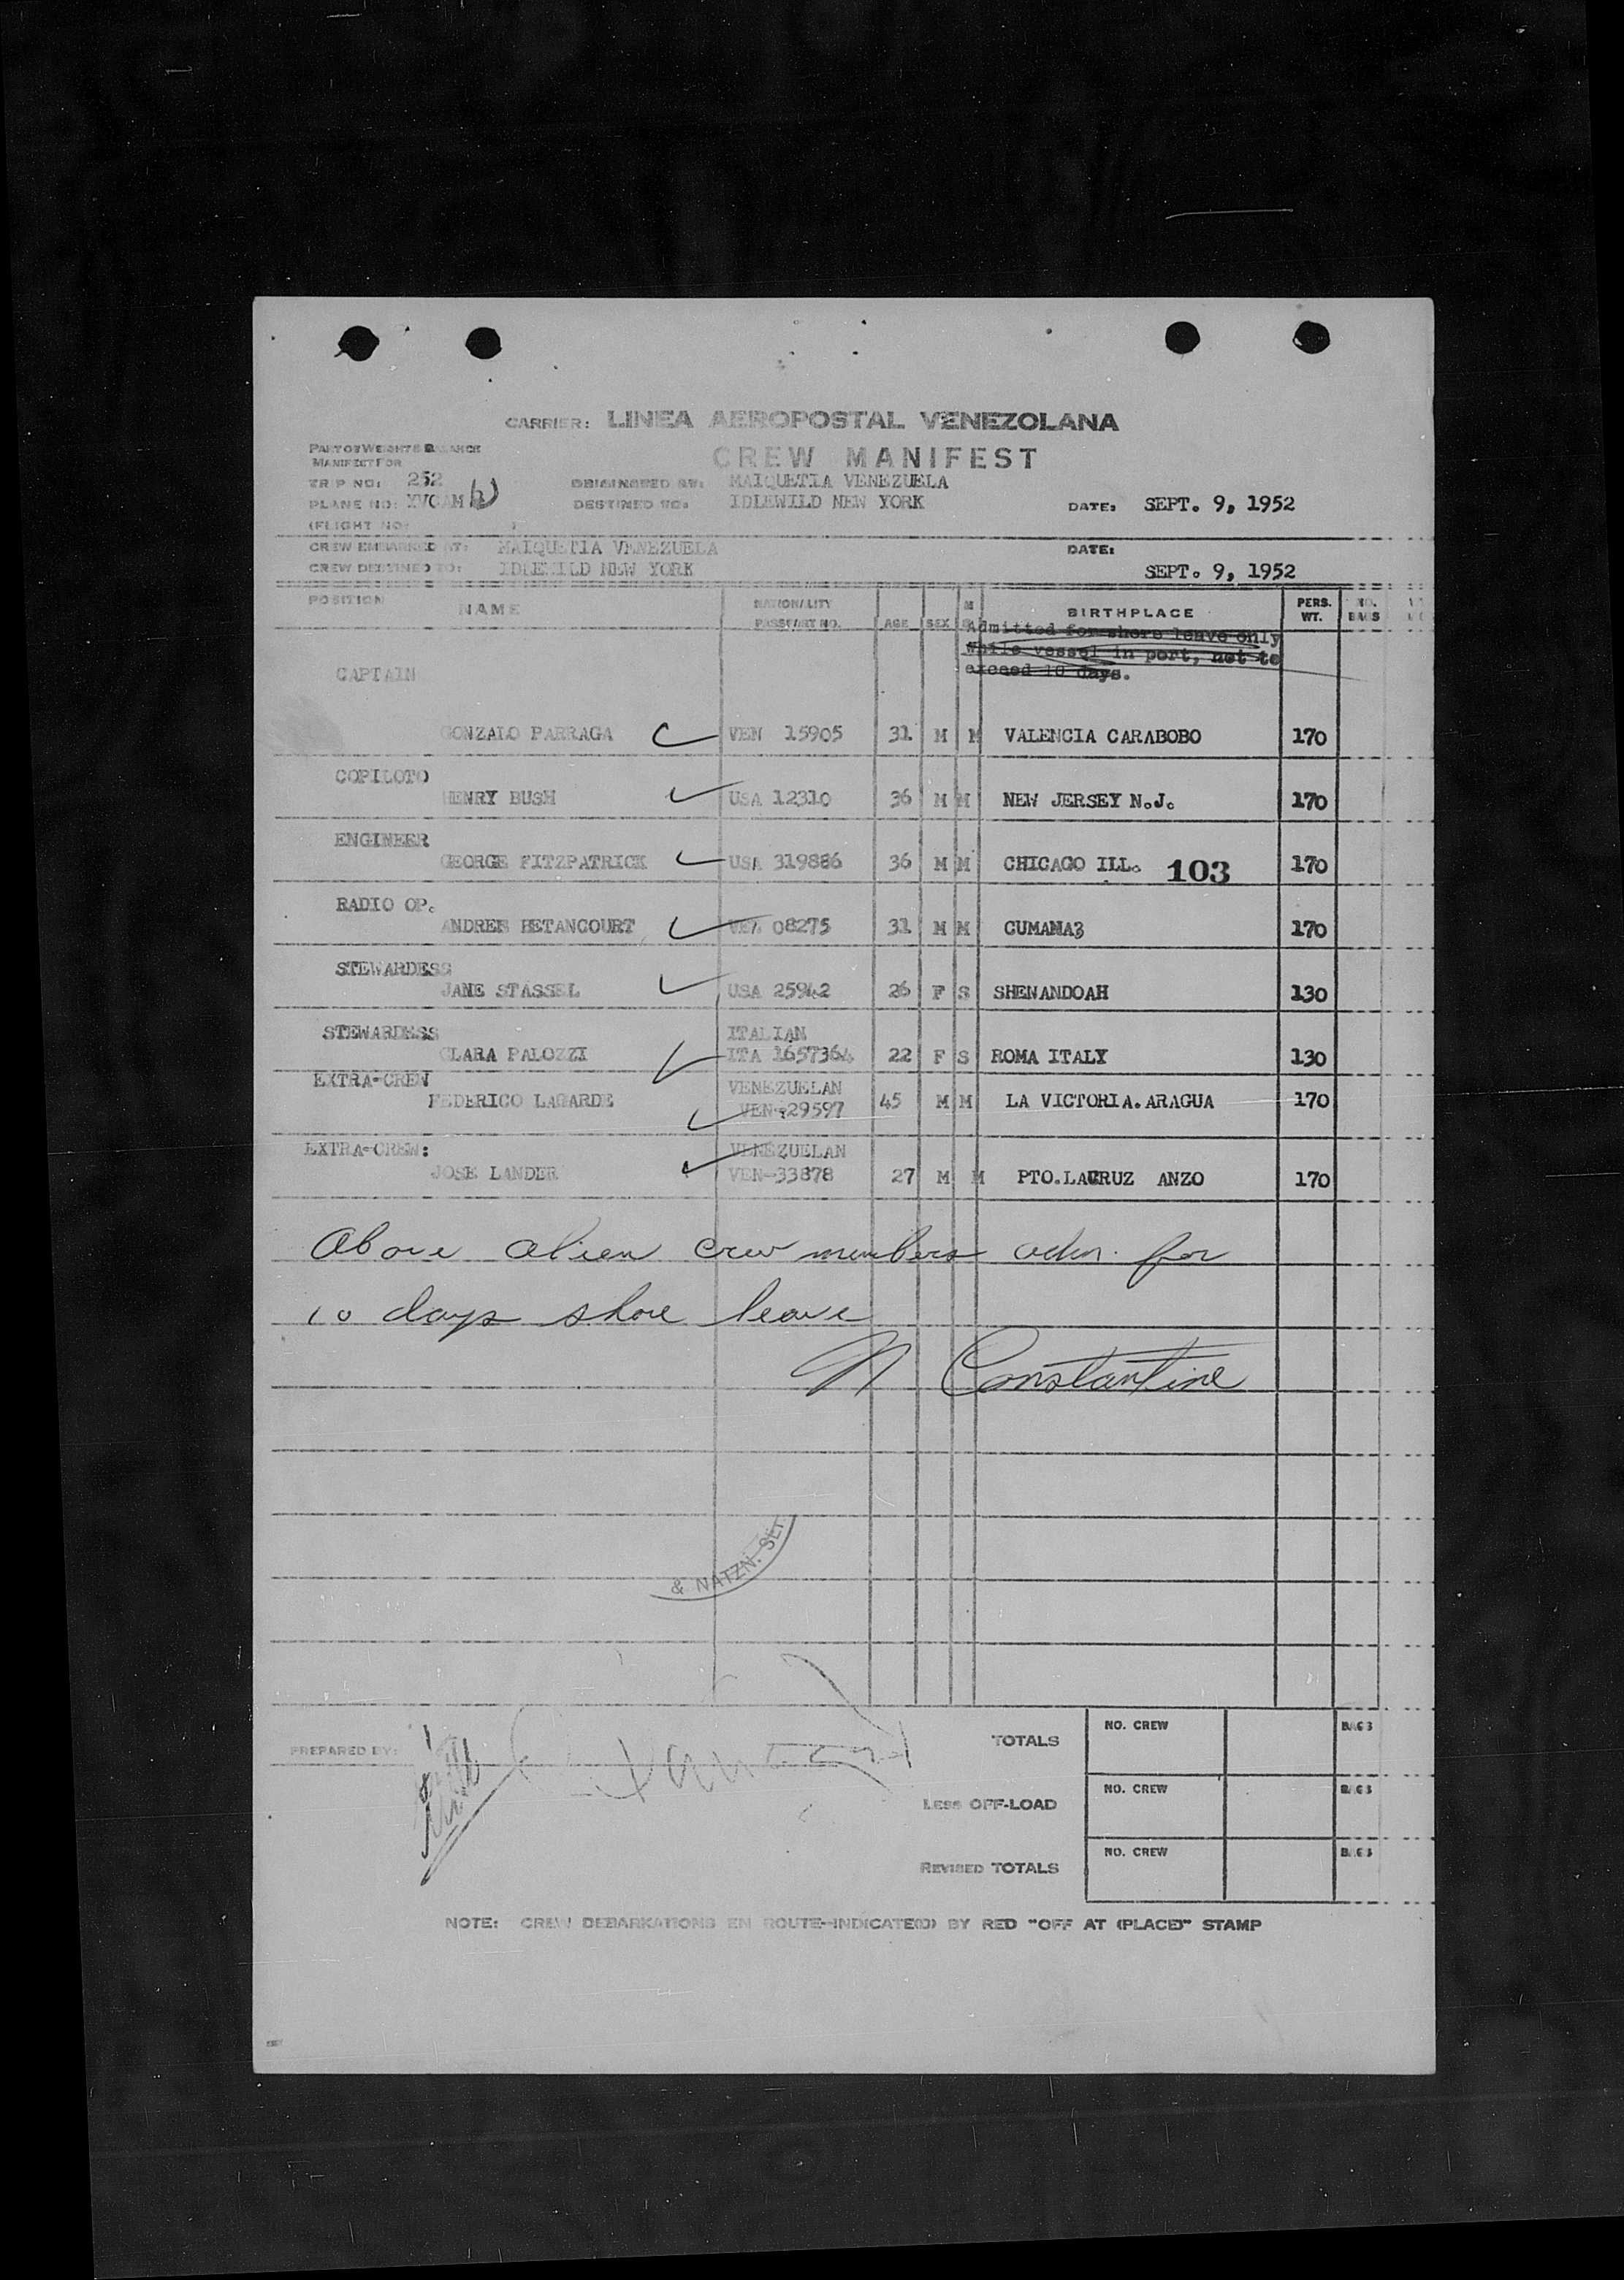 CARRIER: LINEA AEROPOSTAL VENEZOLANA
PART OF WEIGHT & BALANCE
MANIFEST FOR
CREW MANIFEST
TRIP NO: 252 ORIGINATED AT: MAIQUETIA VENEZUELA
PLANE NO: DESTINED TO: IDLEWILD NEW YORK DATE: SEPT. 9, 1952
(FLIGHT NO:
CREW EMBARKED AT: MAIQUETIA VENEZUELA DATE:
CREW DESTINED TO: IDLEWILD NEW YORK SEPT. 9, 1952
POSITION NAME NATIONALITY PASSPORT NO. AGE SEX M S BIRTHPLACE PERS. WT. NO. BAGS
Admitted for shore leave only
While vessel in port, not to
exceed 10 days.
CAPTAIN
GONZALO PARRAGA VEN 15905 31 M M VALENCIA CARABOBO 170
COPILOTO
HENRY BUSH USA 12310 36 M M NEW JERSEY N.J. 170
ENGINEER
GEORGE FITZPATRICK USA 319886 36 M M CHICAGO ILL. 103 170
RADIO OP.
ANDRES BETANCOURT VEN 08275 31 M M CUMANA3 170
STEWARDESS
JANE STASSEL USA 25942 26 F S SHENANDOAH 130
STEWARDESS ITALIAN
CLARA PALOZZI ITA 1657364 22 F S ROMA ITALY 130
EXTRA-CREW VENEZUELAN
FEDERICO LAGARDE VEN-29597 45 M M LA VICTORIA.ARAGUA 170
EXTRA-CREW: VENEZUELAN
JOSE LANDER VEN-33878 27 M M PTO.LACRUZ ANZO 170
Above alien crew members adm. for
10 days shore leave
N Constantine
& NATZN. SE
PREPARED BY: TOTALS NO. CREW BAGS
LESS OFF-LOAD NO. CREW BAGS
REVISED TOTALS NO. CREW BAGS
NOTE: CREW DEBARKATIONS EN ROUTE-INDICATE(D) BY RED "OFF AT (PLACE)" STAMP